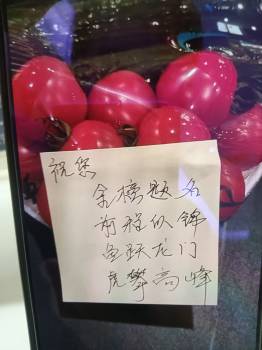 祝您
金榜题名
前程似锦
鱼跃龙门
虎攀高峰